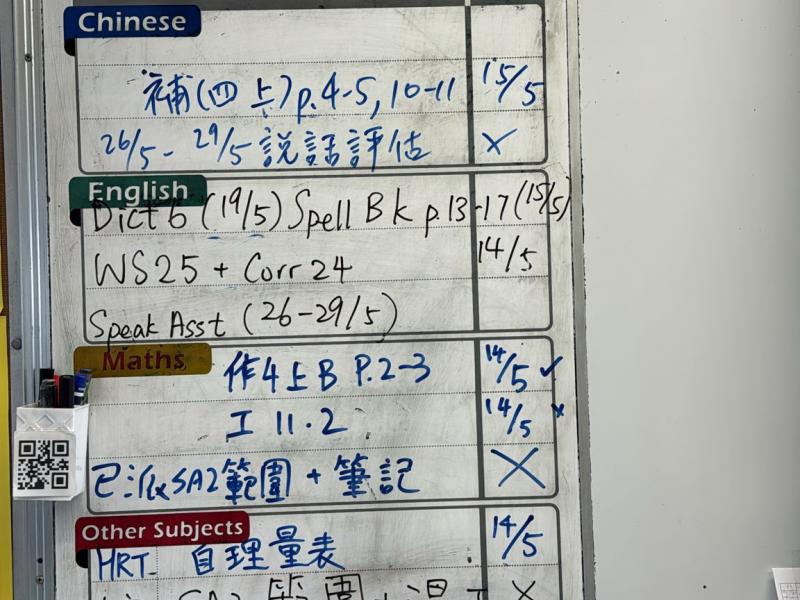 Chinese
補(四上)p.4-5, 10-11 15/5
26/5 - 29/5 説話評估 ×
English
Dict 6 (19/5) Spell Bk p.13-17 (15/5)
WS25 + Corr 24 14/5
Speak Asst (26-29/5)
Maths
作4上B P.2-3 14/5 ✓
工 11.2 14/5 ×
已派SA2範圍 + 筆記 ×
Other Subjects
HRT 自理量表 14/5
SA2範圍 ×